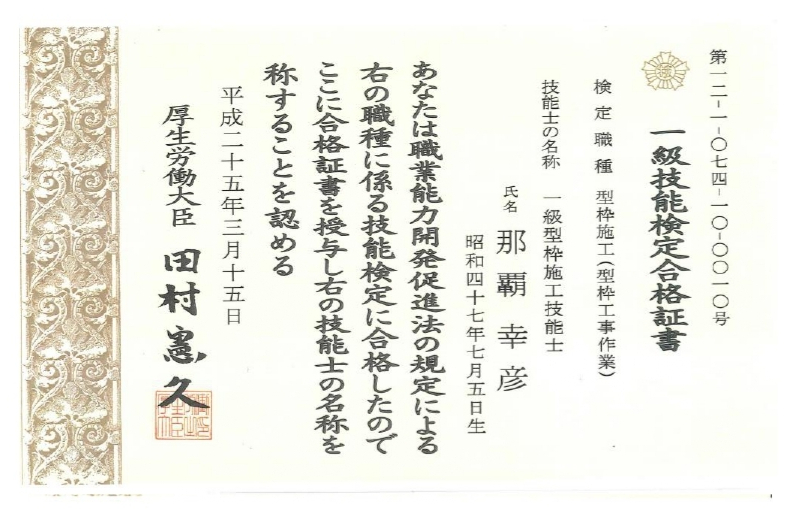 第一二-一-〇七四-一〇-〇〇一〇号
一級技能検定合格証書
検定職種 型枠施工(型枠工事作業)
技能士の名称 一級型枠施工技能士
氏名 那覇幸彦
昭和四十七年七月五日生
あなたは職業能力開発促進法の規定による
右の職種に係る技能検定に合格したので
ここに合格証書を授与し右の技能士の名称を
称することを認める
平成二十五年三月十五日
厚生労働大臣 田村憲久